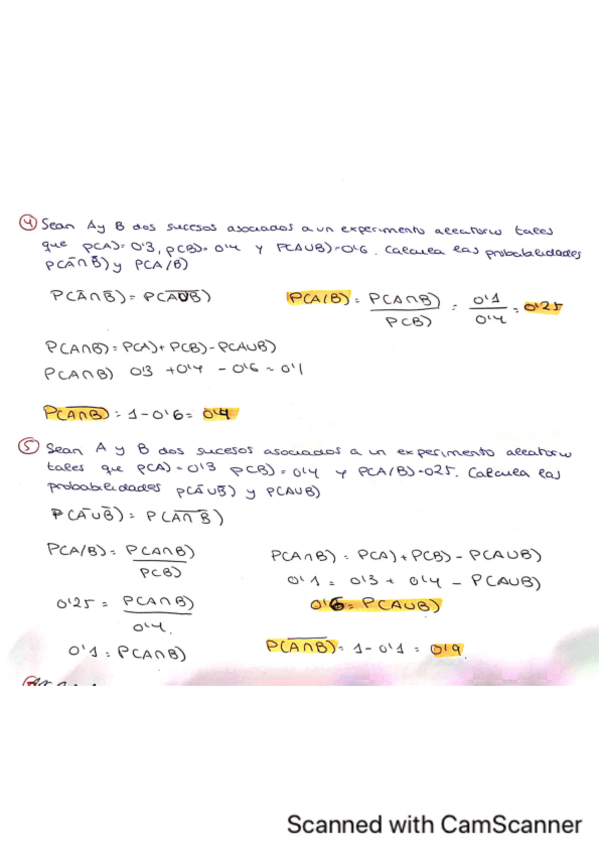 ④ Sean A y B dos sucesos asociados a un experimento aleatorio tales
que P(A)= 0'3, P(B)= 0'4 y P(A∪B)=0'6. Calcula las probabilidades
P(Ā∩B̄) y P(A/B)
P(Ā∩B̄) = P(A̅∪̅B̅)
P(A/B) = P(A∩B) / P(B) = 0'1 / 0'4 = 0'25
P(A∩B) = P(A) + P(B) - P(A∪B)
P(A∩B) 0'3 + 0'4 - 0'6 = 0'1
P(A̅∩̅B̅) = 1 - 0'6 = 0'4
⑤ Sean A y B dos sucesos asociados a un experimento aleatorio
tales que P(A) = 0'3 P(B) = 0'4 y P(A/B) = 025. Calcula las
probabilidades P(Ā∪B̄) y P(A∪B)
P(Ā∪B̄) = P(A̅∩̅B̅)
P(A/B) = P(A∩B) / P(B)
0'25 = P(A∩B) / 0'4.
0'1 = P(A∩B)
P(A∩B) = P(A) + P(B) - P(A∪B)
0'1 = 0'3 + 0'4 - P(A∪B)
0'6 = P(A∪B)
P(A̅∩̅B̅) = 1 - 0'1 = 0'9
Scanned with CamScanner